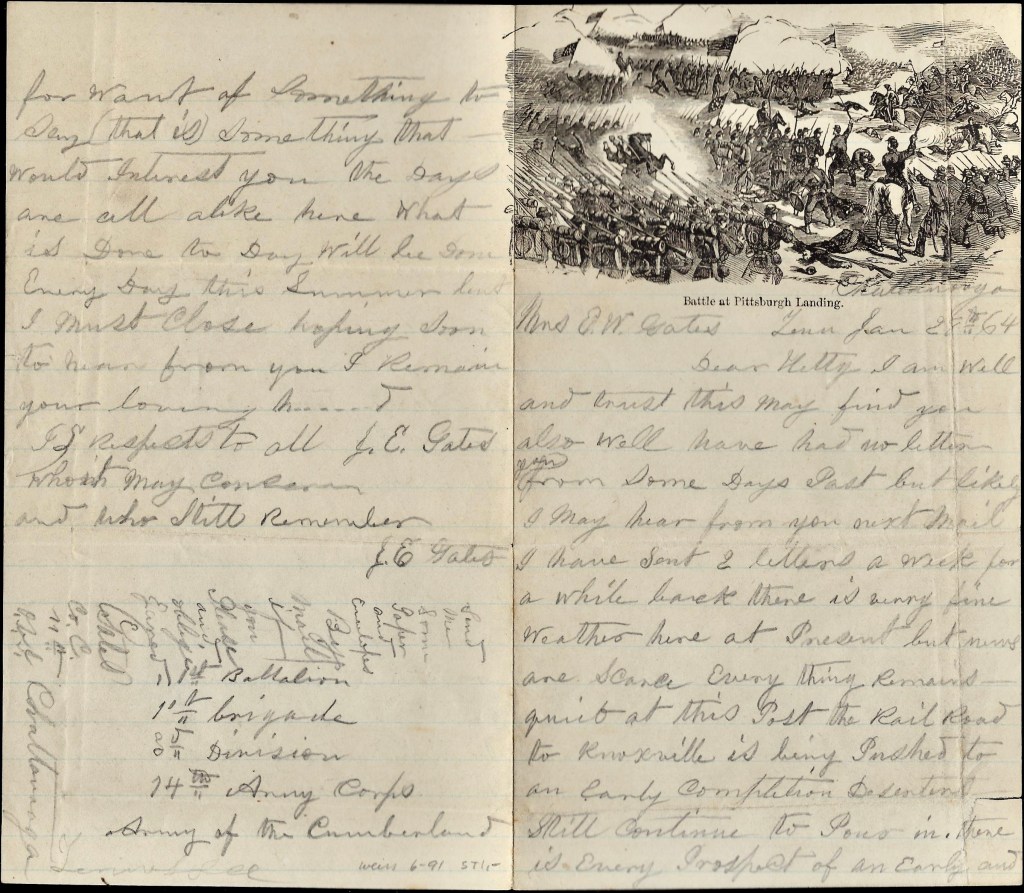 for want of Something to
Say (that is) Something that
would Interest you the Days
are all alike here what
is Done to Day Will be Done
Every Day this Summer but
I Must Close hoping Soon
to hear from you I Remain
your loving h......d
respects to all J. E. Gates
who it May Concern
and who Still Remember
J. E. Gates
Send
me
Some
Paper
and
Envelopes
By
Mail
if
you
Please
and
oblige
E Gates
Co. C.
Chattanooga
Battalion
1st brigade
Division
14th Army Corps
Army of the Cumberland
weiss 6-91
Battle at Pittsburgh Landing.
Chattanooga
Mrs E. W. Gates Tenn Jan 28th 64
Dear Hetty I am Well
and trust this May find you
also Well have had no letter
from Some Days Past but likely
you
I May hear from you next Mail
I have Sent 2 letters a Week for
a while back there is verry fine
Weather here at Present but news
are Scarce Every thing Remains
quiet at this Post the Rail Road
to Knoxville is being Pushed to
an Early Completion Deserters
Still Continue to Pour in. there
is Every Prospect of an Early and